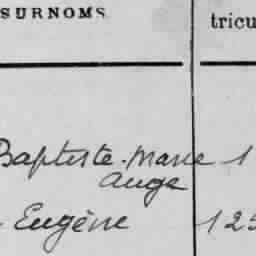 SURNOMS
tricu
Baptiste-Marie 1
Ange
Eugène 125